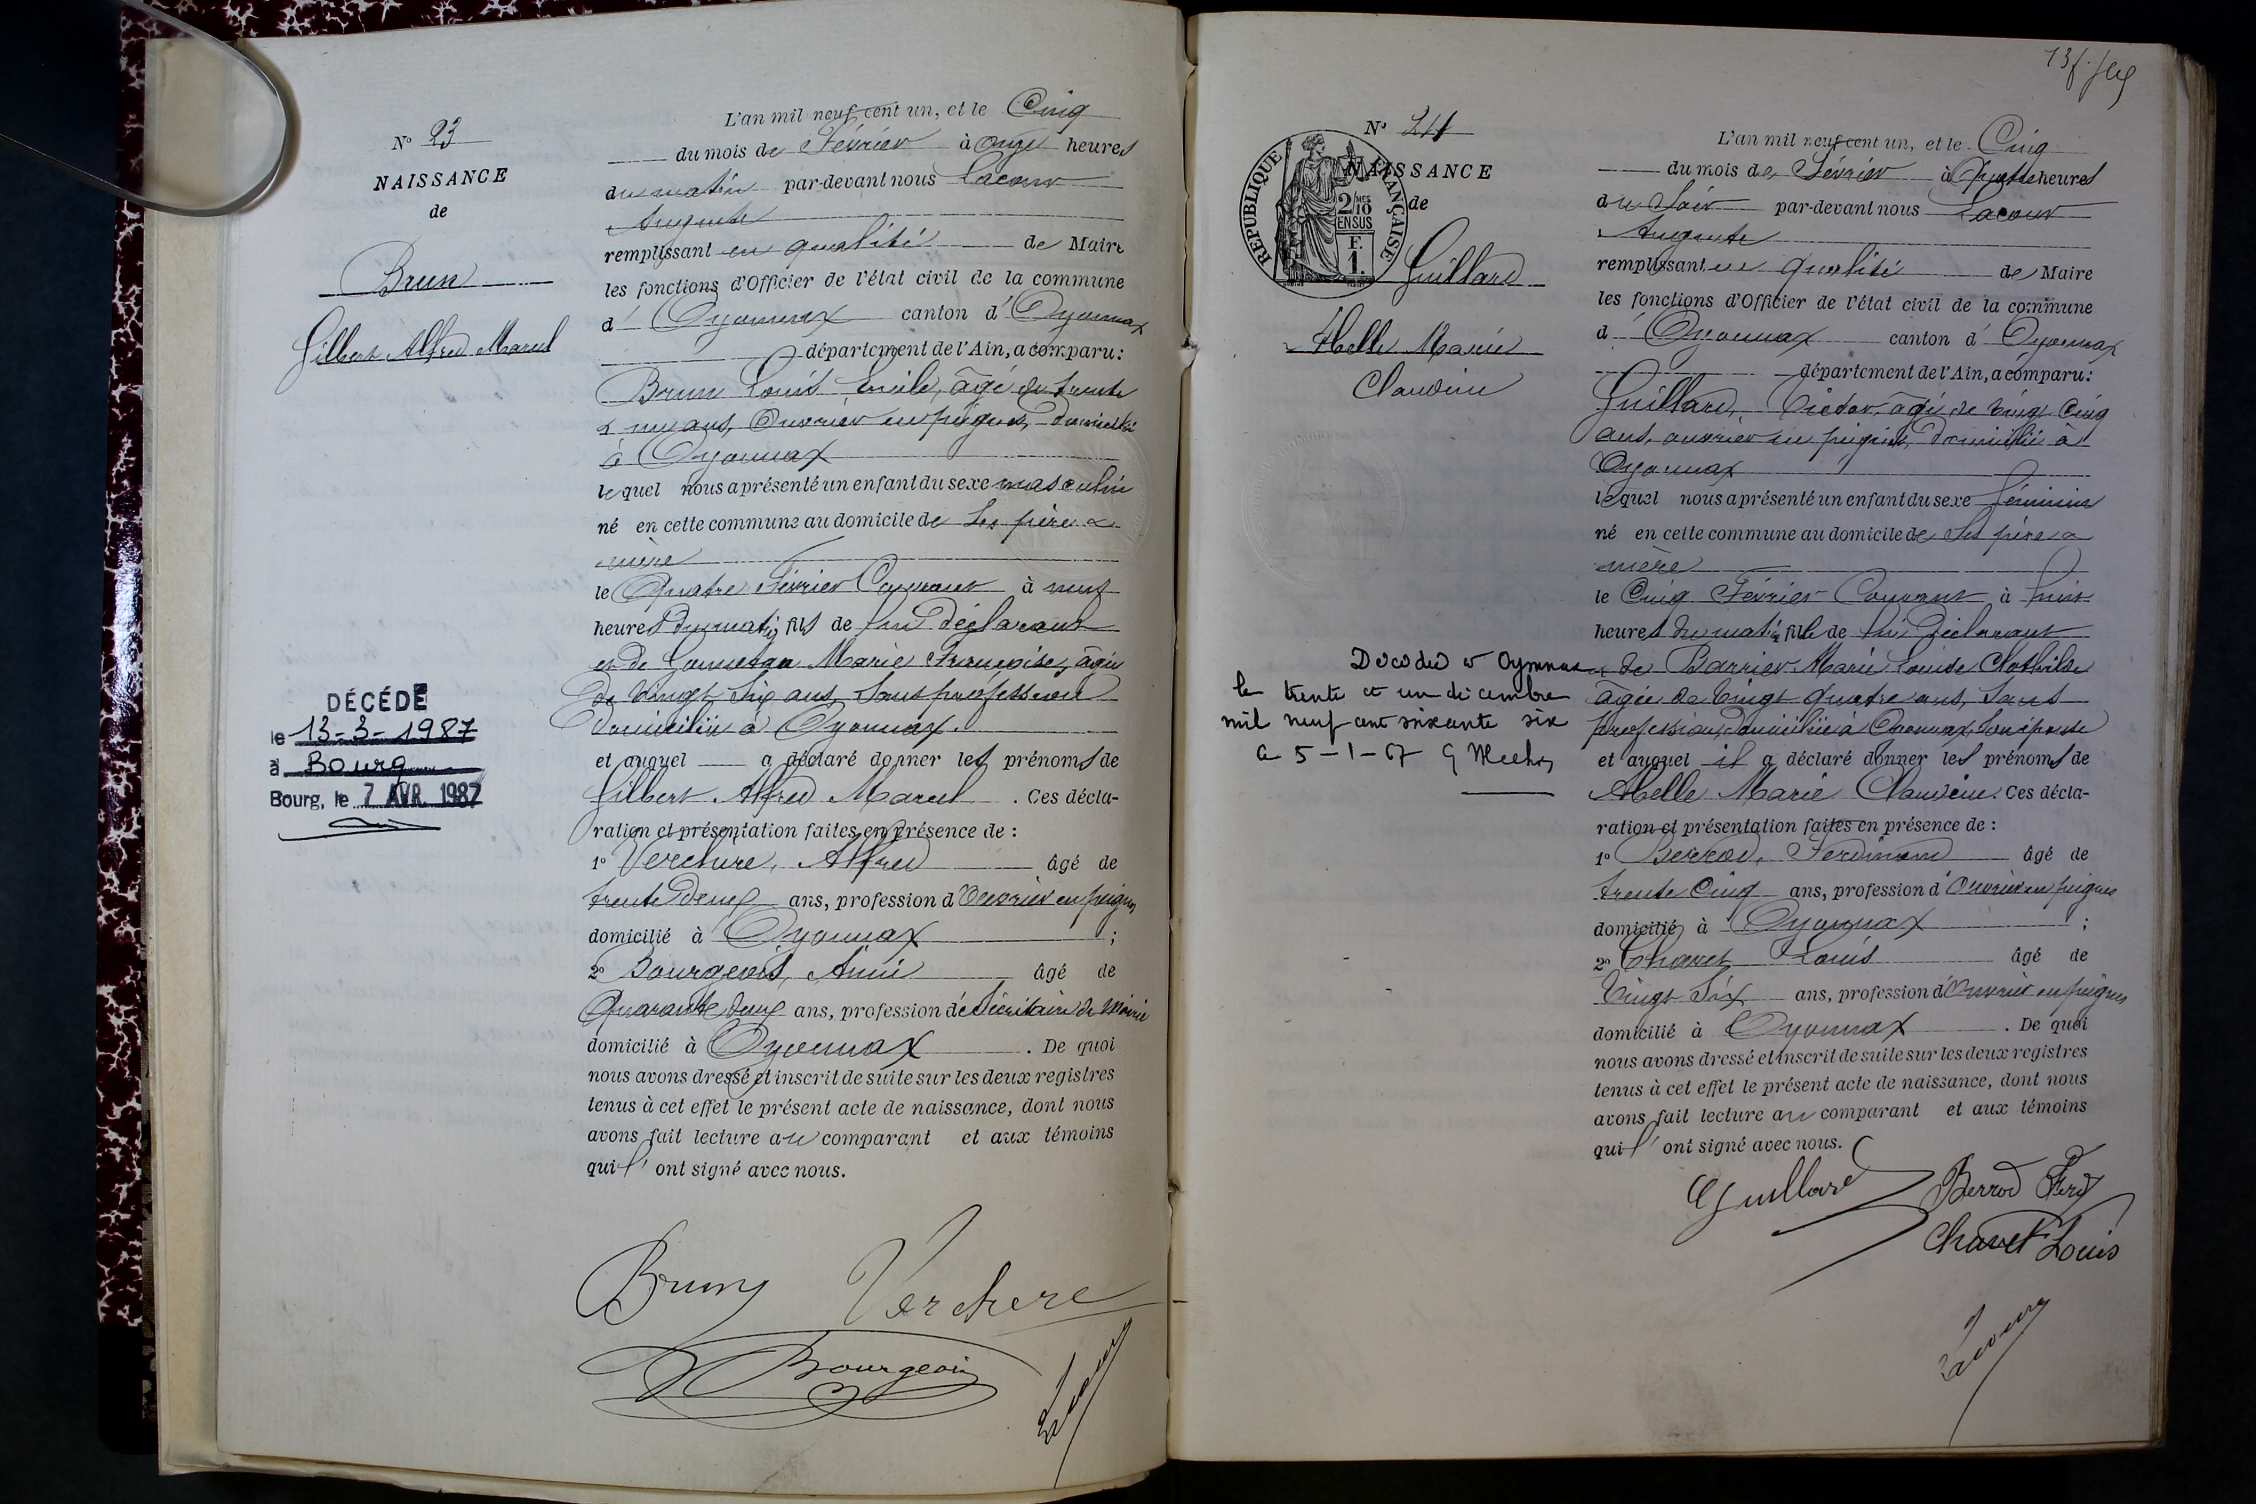 N° 23
NAISSANCE
de
Brun
Gilbert Alfred Marcel
DÉCÉDÉ
le 13-3-1987
à Bourg
Bourg, le 7 AVR. 1987
L'an mil neuf cent un, et le Cinq
du mois de Février à onze heures
du matin par-devant nous Lacour
Auguste
remplissant en qualité de Maire
les fonctions d'Officier de l'état civil de la commune
d' Oyonnax canton d' Oyonnax
département de l'Ain, a comparu:
Brun Louis Emile, âgé de trente
& un ans, Ouvrier en peignes, domicilié
à Oyonnax
lequel nous a présenté un enfant du sexe masculin
né en cette commune au domicile de Ses père &
mère
le Quatre Février Courant à neuf
heures du matin fils de lui déclarant
et de Marie Françoise, âgée
de Vingt Six ans, Sans profession
domiciliée à Oyonnax.
et auquel a déclaré donner les prénoms de
Gilbert Alfred Marcel . Ces décla-
ration et présentation faites en présence de :
1° Verchère, Alfred âgé de
trente Deux ans, profession d'Ouvrier en peignes
domicilié à Oyonnax ;
2° Bourgeois, Aimé âgé de
Quarante deux ans, profession de Sécrétaire de Mairie
domicilié à Oyonnax . De quoi
nous avons dressé et inscrit de suite sur les deux registres
tenus à cet effet le présent acte de naissance, dont nous
avons fait lecture au comparant et aux témoins
qui l' ont signé avec nous.
Brun Verchere
Bourgeois
Lacour
N° 24
NAISSANCE
de
REPUBLIQUE FRANÇAISE
2/10 MES
EN SUS
F.
1.
Guillard
Abelle Marie
Claudine
Décédée à Oyonnax
le trente et un décembre
mil neuf cent soixante six
Le 5-1-67
L'an mil neuf cent un, et le Cinq
du mois de Février à Quatre heures
du Soir par-devant nous Lacour
Auguste
remplissant en qualité de Maire
les fonctions d'Officier de l'état civil de la commune
d' Oyonnax canton d' Oyonnax
département de l'Ain, a comparu:
Guillard, Victor, âgé de Vingt Cinq
ans, ouvrier en peignes, domicilié à
Oyonnax
lequel nous a présenté un enfant du sexe féminin
né en cette commune au domicile de Ses père &
mère
le Cinq Février Courant à huit
heures du matin fille de lui Déclarant
& de Barrier Marie Louise Clothilde
âgée de Vingt quatre ans, Sans
profession, domiciliée à Oyonnax, Son épouse
et auquel il a déclaré donner les prénoms de
Abelle Marie Claudine. Ces décla-
ration et présentation faites en présence de :
1° Berrod, Ferdinand âgé de
trente Cinq ans, profession d'Ouvrier en peignes
domicilié à Oyonnax ;
2° Chavet Louis âgé de
Vingt Six ans, profession d'Ouvrier en peignes
domicilié à Oyonnax . De quoi
nous avons dressé et inscrit de suite sur les deux registres
tenus à cet effet le présent acte de naissance, dont nous
avons fait lecture au comparant et aux témoins
qui l' ont signé avec nous.
Guillard Berrod Ferd
Chavet Louis
Lacour